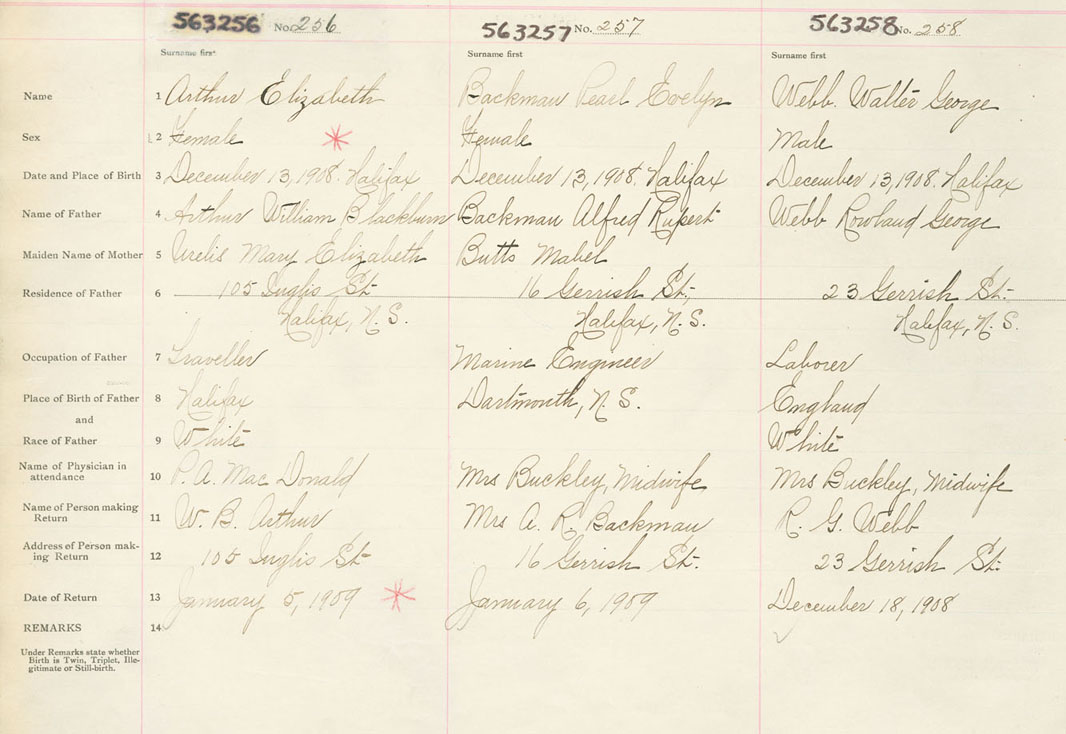 563256 No. 256 563257 No. 257 563258 No. 258
Surname first Surname first Surname first
Name 1 Arthur Elizabeth Backman Pearl Evelyn Webb. Walter George
Sex 2 Female Female Male
Date and Place of Birth 3 December 13, 1908. Halifax December 13, 1908. Halifax December 13, 1908. Halifax
Name of Father 4 Arthur William Blackburn Backman Alfred Rupert Webb Rowland George
Maiden Name of Mother 5 Mary Elizabeth Butts Mabel
Residence of Father 6 105 Inglis St. 16 Gerrish St. 23 Gerrish St.
Halifax, N.S. Halifax, N.S. Halifax, N.S.
Occupation of Father 7 Traveller Marine Engineer Laborer
Place of Birth of Father 8 Halifax Dartmouth, N.S. England
and
Race of Father 9 White White
Name of Physician in attendance 10 P. A. Mac Donald Mrs Buckley, Midwife Mrs Buckley, Midwife
Name of Person making Return 11 W. B. Arthur Mrs A. R. Backman R. G. Webb
Address of Person mak-ing Return 12 105 Inglis St. 16 Gerrish St. 23 Gerrish St.
Date of Return 13 January 5, 1909 January 6, 1909 December 18, 1908
REMARKS 14
Under Remarks state whether
Birth is Twin, Triplet, Ille-
gitimate or Still-birth.